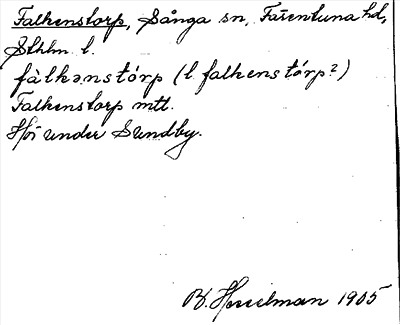 Falkenstorp, Sånga sn, Färentuna hd,
Sthlm l.
fàlkənstórp (l. falkenstórp?)
Falkenstorp mtl.
Hör under Sundby.
B. Hesselman 1905